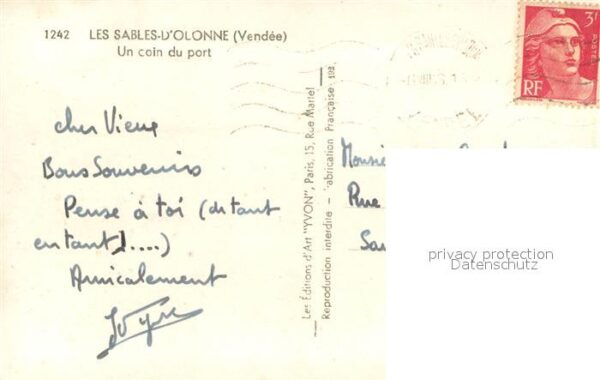 1242 LES SABLES-D'OLONNE (Vendée)
Un coin du port
cher Vieux
Bons Souvenirs
Pense à toi (de tant
en tant!....)
Amicalement
Les Éditions d'Art "YVON", Paris, 15, Rue Martel
Reproduction interdite - Fabrication Française
3F
RF
Monsieur
Rue
privacy protection
Datenschutz